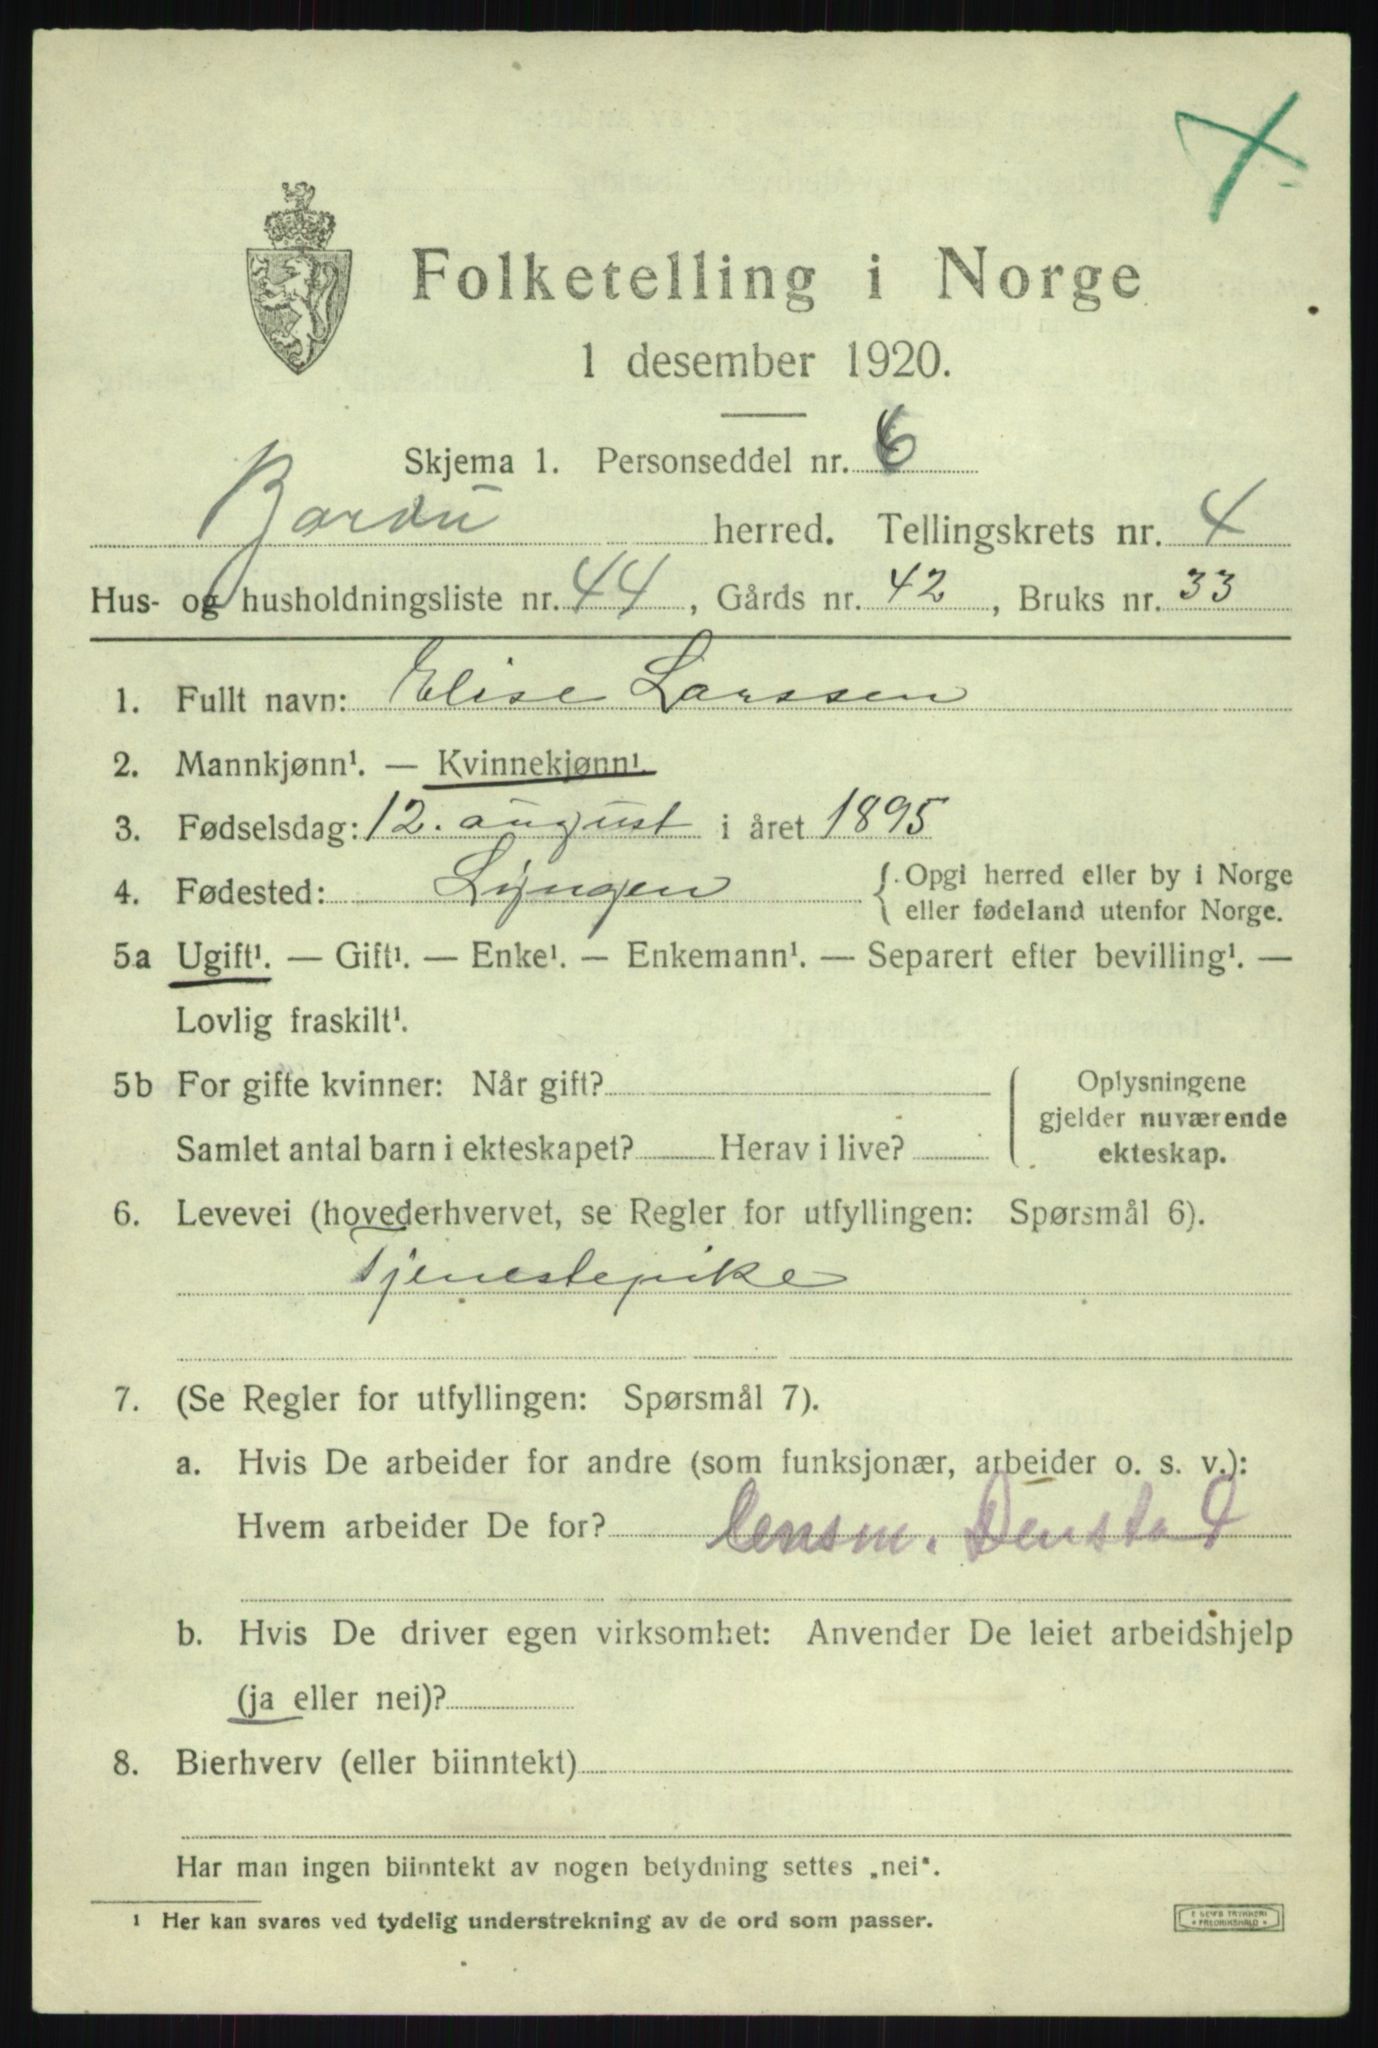 Folketelling i Norge
1 desember 1920.
Skjema 1. Personseddel nr. 6
Bardu herred. Tellingskrets nr. 4
Hus- og husholdningsliste nr. 44, Gårds nr. 42, Bruks nr. 33
1. Fullt navn: Elise Larssen
2. Mannkjønn¹. — Kvinnekjønn¹.
3. Fødselsdag: 12. august i året 1895
4. Fødested: Lyngen { Opgi herred eller by i Norge
eller fødeland utenfor Norge.
5a Ugift¹. — Gift¹. — Enke¹. — Enkemann¹. — Separert efter bevilling¹. —
Lovlig fraskilt¹.
5b For gifte kvinner: Når gift?
Samlet antal barn i ekteskapet? Herav i live?
Oplysningene
gjelder nuværende
ekteskap.
6. Levevei (hovederhvervet, se Regler for utfyllingen: Spørsmål 6).
Tjenestepike
7. (Se Regler for utfyllingen: Spørsmål 7).
a. Hvis De arbeider for andre (som funksjonær, arbeider o. s. v.):
Hvem arbeider De for? lensm. Denstad
b. Hvis De driver egen virksomhet: Anvender De leiet arbeidshjelp
(ja eller nei)?
8. Bierhverv (eller biinntekt)
Har man ingen biinntekt av nogen betydning settes „nei“.
¹ Her kan svares ved tydelig understrekning av de ord som passer.